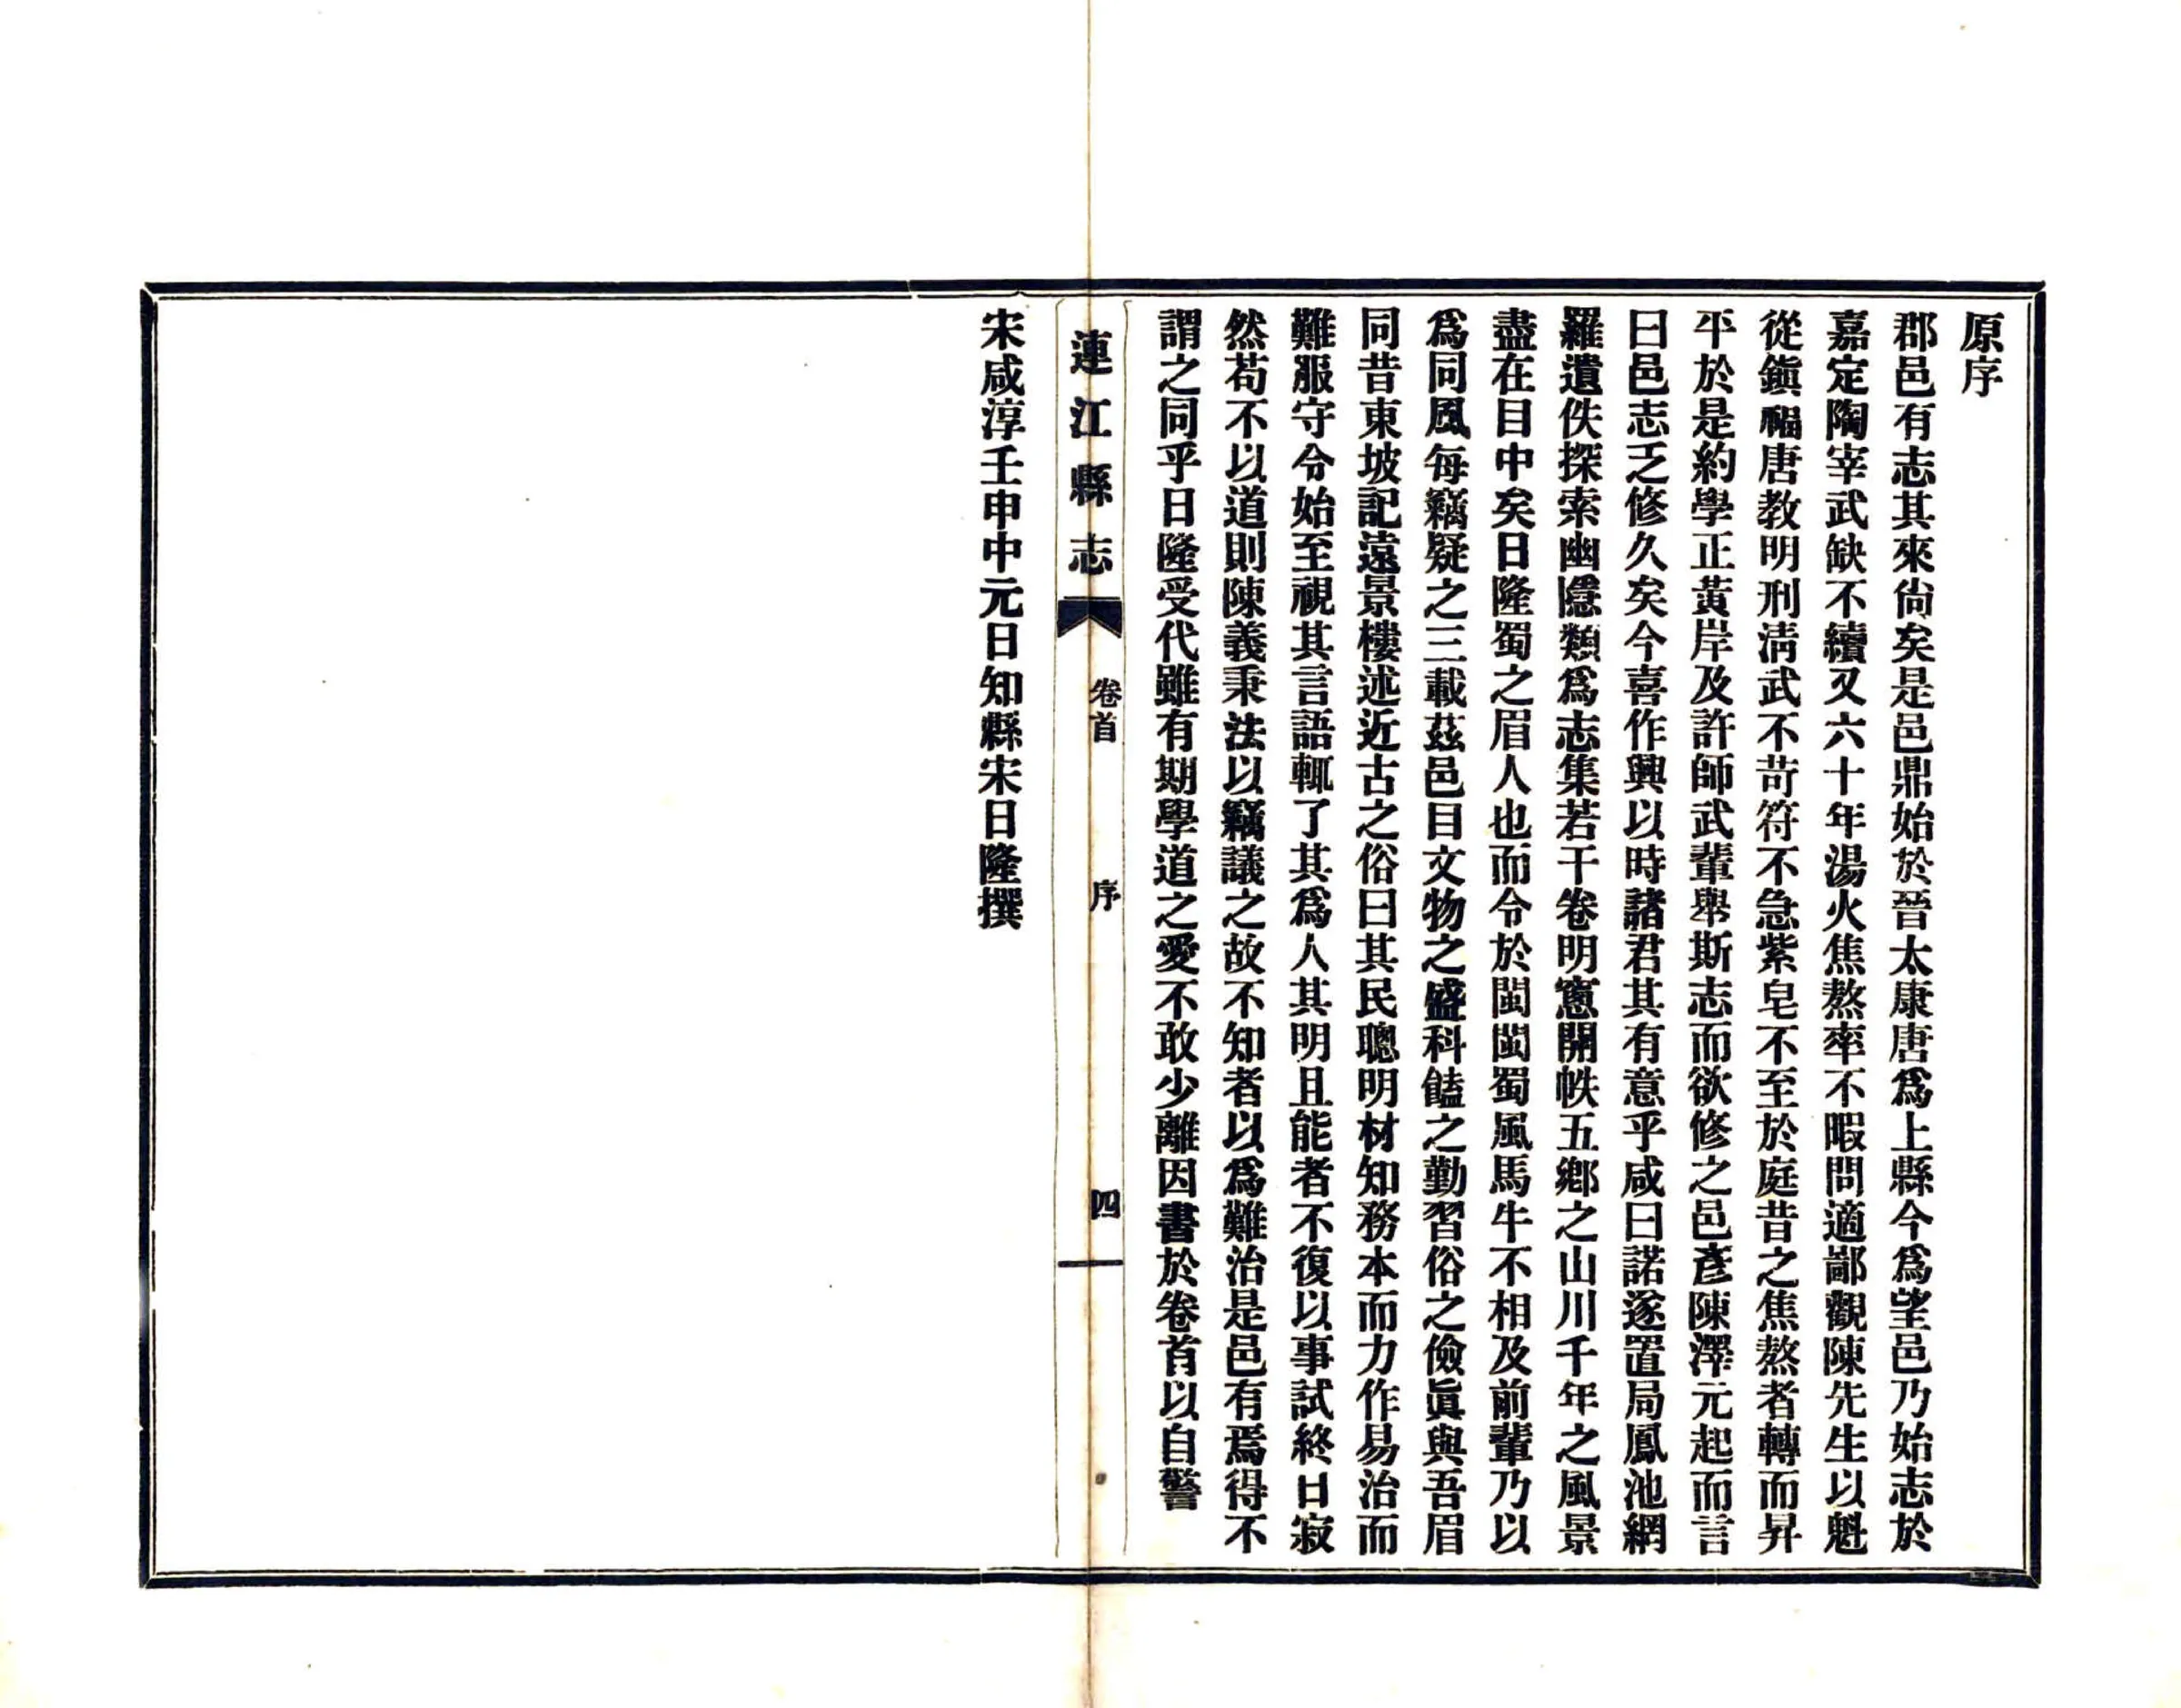 原序
郡邑有志其來尙矣是邑鼎始於晉太康唐爲上縣今爲望邑乃始志於
嘉定陶宰武缺不續又六十年湯火焦熬率不暇問適鄙觀陳先生以魁
從鎭福唐教明刑淸武不苛符不急紫皂不至於庭昔之焦熬者轉而昇
平於是約學正黃岸及許師武輩舉斯志而欲修之邑彥陳澤元起而言
曰邑志之修久矣今喜作興以時諸君其有意乎咸曰諾遂置局鳳池網
羅遺佚探索幽隱類爲志集若干卷明窻開帙五鄕之山川千年之風景
盡在目中矣日隆蜀之眉人也而令於閩閩蜀風馬牛不相及前輩乃以
爲同風每竊疑之三載茲邑目文物之盛科饁之勤習俗之儉眞與吾眉
同昔東坡記遠景樓述近古之俗曰其民聰明材知務本而力作易治而
難服守令始至視其言語輒了其爲人其明且能者不復以事試終日寂
然苟不以道則陳義秉法以竊議之故不知者以爲難治是邑有焉得不
謂之同乎日隆受代雖有期學道之愛不敢少離因書於卷首以自警
連江縣志 卷首 序 四
宋咸淳壬申中元日知縣宋日隆撰